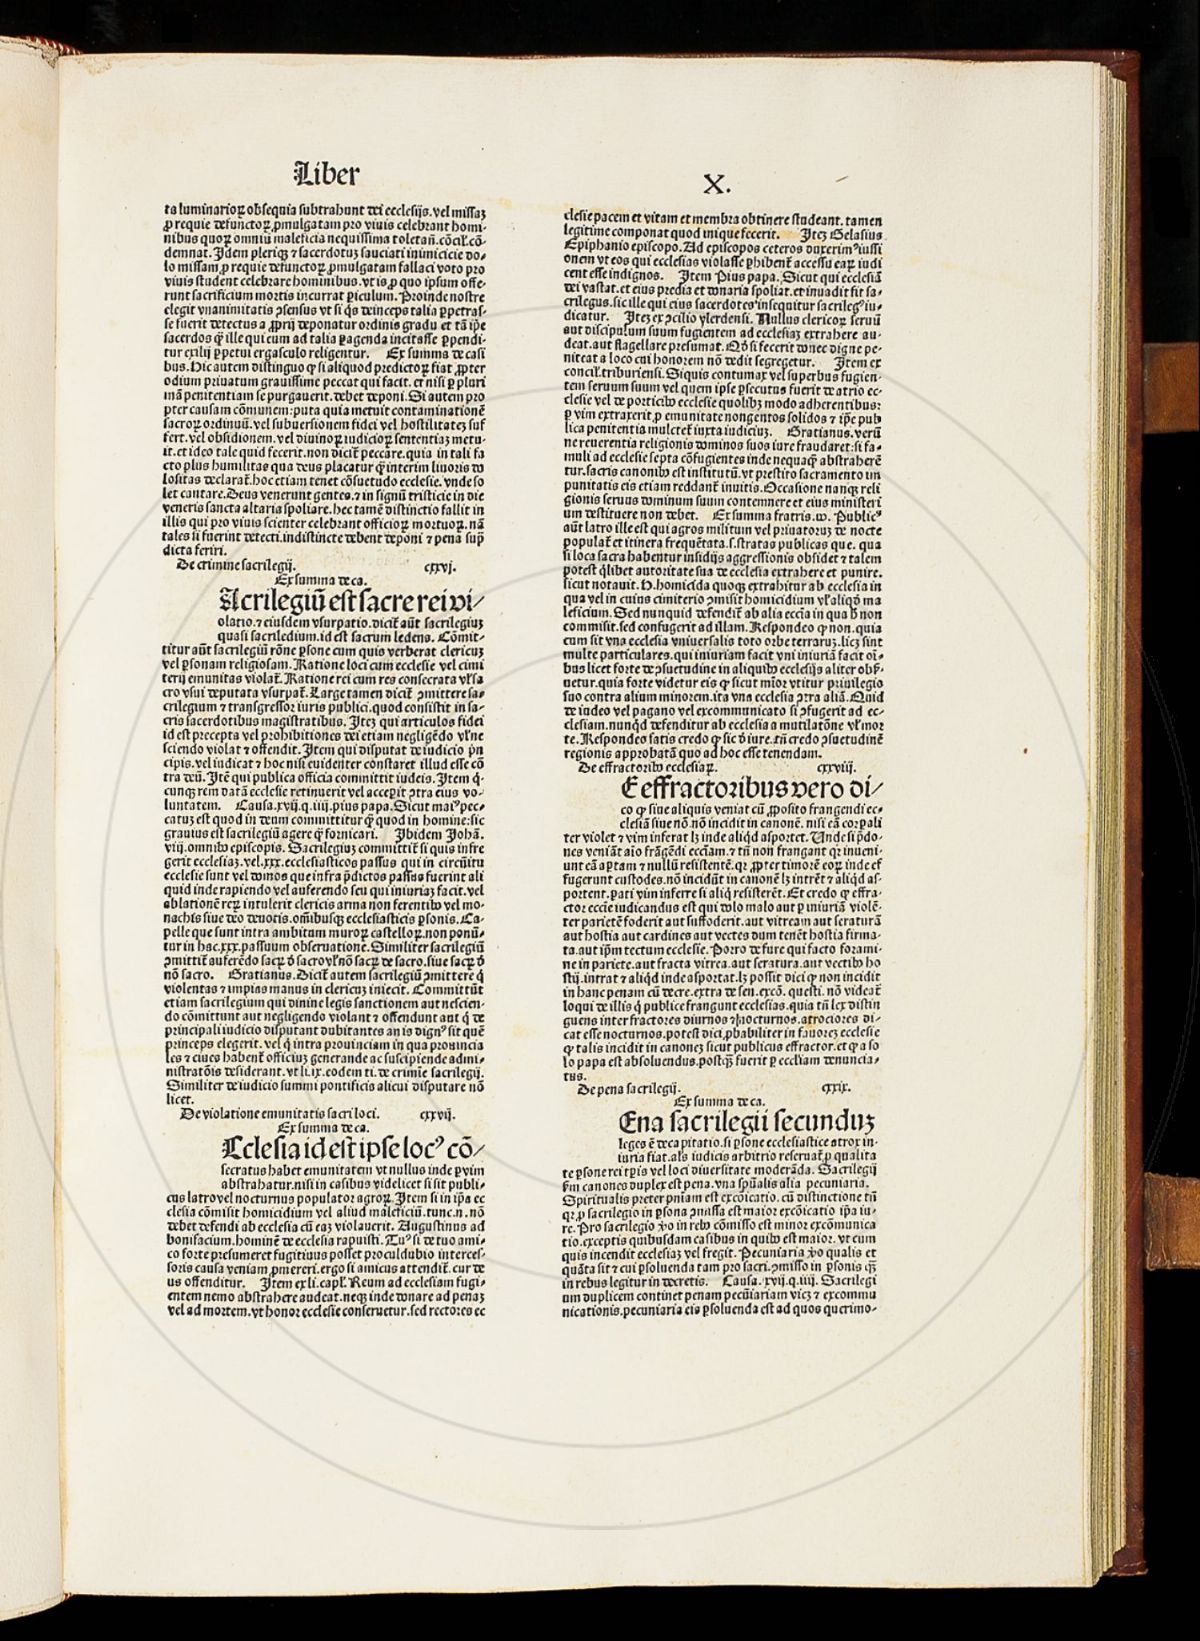 Liber
X.
ta luminarioꝝ obsequia subtrahunt dei ecclesijs. vel missaꝫ
ꝓ requie defunctoꝝ ꝓmulgatam pro viuis celebrant homi-
nibus quoꝝ omniũ maleficia nequissima toletañ. cõcil̃. cõ-
demnat. Idem pleriqꝫ ⁊ sacerdotuꝫ sauciati inimicicie do-
lo missam ꝓ requie defunctoꝝ ꝓmulgatam fallaci voto pro
viuis student celebrare hominibus. vt is ꝓ quo ipsum offe-
runt sacrificium mortis incurrat ꝑiculum. Proinde nostre
elegit vnanimitatis ꝯsensus vt si q̃s deinceps talia ꝑpetras-
se fuerit detectus a ꝓprij deponatur ordinis gradu et tã ip̃e
sacerdos ꝙ̃ ille qui eum ad talia ꝑagenda incitasse ꝑpendi-
tur exilij ꝑpetui ergasculo religentur. Ex summa de casi
bus. Hic autem distinguo ꝙ si aliquod predictoꝝ fiat ꝓpter
odium priuatum grauissime peccat qui facit. et nisi ꝑ pluri
mã penitentiam se purgauerit. debet deponi. Si autem pro
pter causam cõmunem: puta quia metuit contaminationẽ
sacroꝝ ordinuũ. vel subuersionem fidei vel hostilitateꝫ suf
fert. vel obsidionem. vel diuinoꝝ iudicioꝝ sententiaꝫ metu-
it. et ideo tale quid fecerit. non dicit̃ peccare. quia in tali fa
cto plus humilitas qua deus placatur ꝙ̃ interim liuoris do
lositas declarat̃. hoc etiam tenet cõsuetudo ecclesie. vnde so
let cantare. Deus venerunt gentes. ⁊ in signũ tristicie in die
veneris sancta altaria spoliare. hec tamẽ distinctio fallit in
illis qui pro viuis scienter celebrant officioꝝ mortuoꝝ. nã
tales si fuerint detecti. indistincte debent deponi ⁊ pena sup̃
dicta feriri.
De crimine sacrilegij. cxxvj.
Ex summa de ca.
Acrilegiũ est sacre rei vi/
olatio. ⁊ eiusdem vsurpatio. dicit̃ aũt sacrilegiuꝫ
quasi sacriledium. id est sacrum ledens. Cõmit-
titur aũt sacrilegiũ rõne ꝑsone cum quis verberat clericuꝫ
vel ꝑsonam religiosam. Ratione loci cum ecclesie vel cimi
terij emunitas violat̃. Ratione rei cum res consecrata vl̃ sa
cro vsui deputata vsurpat̃. Large tamen dicit̃ ꝯmittere sa-
crilegium ⁊ transgressor iuris publici. quod consistit in sa-
cris sacerdotibus magistratibus. Iteꝫ qui articulos fidei
id est precepta vel prohibitiones dei etiam negligẽdo vl̃ ne
sciendo violat ⁊ offendit. Item qui disputat de iudicio p̃n
cipis. vel iudicat ⁊ hoc nisi euidenter constaret illud esse cõ
tra deũ. Itẽ qui publica officia committit iudeis. Item q̃-
cunqꝫ rem datã ecclesie retinuerit vel acceꝑit ꝯtra eius vo-
luntatem. Causa. xvij. q. iiij. pius papa. Sicut mai⁹ pec-
catuꝫ est quod in deum committitur ꝙ̃ quod in homine: sic
grauius est sacrilegiũ agere ꝙ̃ fornicari. Ibidem Johã.
viij. omnibꝫ episcopis. Sacrilegiuꝫ committit̃ si quis infre
gerit ecclesiaꝫ. vel. xxx. ecclesiasticos passus qui in circũitu
ecclesie sunt vel domos que infra p̃dictos passus fuerint ali
quid inde rapiendo vel auferendo seu qui iniuriaꝫ facit. vel
ablationẽ reꝝ intulerit clericis arma non ferentibꝫ vel mo-
nachis siue deo deuotis. omĩbusqꝫ ecclesiasticis ꝑsonis. Ca-
pelle que sunt intra ambitum muroꝝ castelloꝝ. non ponũ-
tur in hac. xxx. passuum obseruatione. Similiter sacrilegiũ
ꝯmittit̃ auferẽdo sacꝝ d̃ sacro vl̃ nõ sacꝝ de sacro. siue sacꝝ d̃
nõ sacro. Gratianus. Dicit̃ autem sacrilegiũ ꝯmittere q̃
violentas ⁊ impias manus in clericuꝫ iniecit. Committũt
etiam sacrilegium qui diuine legis sanctionem aut nescien-
do cõmittunt aut negligendo violant ⁊ offendunt aut q̃ de
principali iudicio disputant dubitantes an is dign⁹ sit quẽ
princeps elegerit. vel q̃ intra prouinciam in qua prouincia
les ⁊ ciues habent̃ officiuꝫ generande ac suscipiende admi-
nistratõis desiderant. vt li. ix. eodem ti. de crimĩe sacrilegij.
Similiter de iudicio summi pontificis alicui disputare nõ
licet.
De violatione emunitatis sacri loci. cxxvij.
Ex summa de ca.
Cclesia id est ipse loc⁹ cõ/
secratus habet emunitatem vt nullus inde ꝑ vim
abstrahatur. nisi in casibus videlicet si sit publi-
cus latro vel nocturnus populator agroꝝ. Item si in ip̃a ec
clesia cõmisit homicidium vel aliud maleficiũ. tunc. n. nõ
debet defendi ab ecclesia cũ eaꝫ violauerit. Augustinus ad
bonifacium. hominẽ de ecclesia rapuisti. Tu⁹ si de tuo ami-
co forte presumeret fugitiuus posset proculdubio interces-
soris causa veniam ꝓmereri. ergo si amicus attendit̃. cur de
us offenditur. Item ex li. capl̃. Reum ad ecclesiam fugi-
entem nemo abstrahere audeat. neqꝫ inde donare ad penaꝫ
vel ad mortem. vt honor ecclesie conseruetur. sed rectores ec
clesie pacem et vitam et membra obtinere studeant. tamen
legitime componat quod inique fecerit. Iteꝫ Gelasius
Epiphanio episcopo. Ad episcopos ceteros duxerim⁹ iussi
onem vt eos qui ecclesias violasse ꝑhibent̃ accessu eaꝝ iudi
cent esse indignos. Item Pius papa. Sicut qui ecclesiã
dei vastat. et eius predia et donaria spoliat. et inuadit fit sa-
crilegus. sic ille qui eius sacerdotes insequitur sacrileg⁹ iu-
dicatur. Iteꝫ ex ꝯcilio ylerdensi. Nullus clericoꝝ seruũ
aut discipulum suum fugientem ad ecclesiaꝫ extrahere au-
deat. aut flagellare presumat. Qd̃ si fecerit donec digne pe-
niteat a loco cui honorem nõ dedit segregetur. Item ex
concil̃. triburiensi. Siquis contumax vel superbus fugien-
tem seruum suum vel quem ipse ꝑsecutus fuerit de atrio ec-
clesie vel de porticibꝫ ecclesie quolibꝫ modo adherentibus:
ꝑ vim extraxerit. ꝓ emunitate nongentos solidos ⁊ ip̃e pub
lica penitentia multcet̃ iuxta iudiciuꝫ. Gratianus. verũ
ne reuerentia religionis dominos suos iure fraudaret: si fa-
muli ad ecclesie septa cõfugientes inde nequaꝙ̃ abstraherẽ
tur. sacris canonibꝫ est institutũ. vt prestito sacramento im
punitatis eis etiam reddant̃ inuitis. Occasione nanqꝫ reli
gionis seruus dominum suum contemnere et eius ministeri
um destituere non debet. Ex summa fratris. w. Public⁹
aũt latro ille est qui agros militum vel priuatoruꝫ de nocte
populat̃ et itinera frequẽtata. s. stratas publicas que. qua
si loca sacra habentur insidijs aggressionis obsidet ⁊ talem
potest q̃libet autoritate sua de ecclesia extrahere et punire.
sicut notauit. H. homicida quoqꝫ extrahitur ab ecclesia in
qua vel in cuius cimiterio ꝯmisit homicidium vl̃ aliqd̃ ma
leficium. Sed nunquid defendit̃ ab alia ecc̃ia in qua d̃ non
commisit. sed confugerit ad illam. Respondeo ꝙ non. quia
cum sit vna ecclesia vniuersalis toto orbe terraruꝫ. licꝫ sint
multe particulares. qui iniuriam facit vni iniuriã facit oĩ-
bus licet forte de ꝯsuetudine in aliquibꝫ ecclesijs aliter obs̃-
uetur. quia forte videtur eis ꝙ sicut mĩor vtitur priuilegio
suo contra alium minorem. ita vna ecclesia ꝯtra aliã. Quid
de iudeo vel pagano vel excommunicato si ꝯfugerit ad ec-
clesiam. nunqd̃ defenditur ab ecclesia a mutilatõne vl̃ mor
te. Respondeo satis credo ꝙ sic d̃ iure. tñ credo ꝯsuetudinẽ
regionis approbatã quo ad hoc esse tenendam.
De effractoribꝫ ecclesiaꝝ. cxxviij.
E effractoribus vero di/
co ꝙ siue aliquis veniat cũ ꝓposito frangendi ec-
clesiã siue nõ nõ incidit in canonẽ. nisi eã corꝑali
ter violet ⁊ vim inferat lꝫ inde aliqd̃ asportet. Unde si p̃do-
nes veniãt aĩo frãgẽdi ecc̃iam. ⁊ tñ non frangant qꝛ inueni-
unt eã aꝑtam ⁊ nullũ resistentẽ. qꝛ ꝓpter timorẽ eoꝝ inde ef
fugerunt custodes. nõ incidũt in canonẽ lꝫ intrẽt ⁊ aliqd̃ as-
portent. ꝑati vim inferre si aliq̃ resisterẽt. Et credo ꝙ effra-
ctor ecc̃ie iudicandus est qui dolo malo aut ꝑ iniuriã violẽ-
ter parietẽ foderit aut suffoderit. aut vitream aut seraturã
aut hostia aut cardines aut vectes dum tenẽt hostia firma-
ta. aut ip̃m tectum ecclesie. Porro de fure qui facto forami-
ne in pariete. aut fracta vitrea. aut seratura. aut vectibꝫ ho
stij. intrat ⁊ aliqd̃ inde asportat. lꝫ possit dici ꝙ non incidit
in hanc penam cũ decre. extra de sen. excõ. questi. nõ videat̃
loqui de illis q̃ publice frangunt ecclesias. quia tñ lex distin
guens inter fractores diurnos ⁊ nocturnos. atrociores di-
cat esse nocturnos. potest dici ꝓbabiliter in fauoreꝫ ecclesie
ꝙ talis incidit in canoneꝫ sicut publicus effractor. et ꝙ a so
lo papa est absoluendus. postqꝫ̃ fuerit ꝑ eccl̃iam denuncia-
tus.
De pena sacrilegij. cxxix.
Ex summa de ca.
Ena sacrilegii secunduꝫ
leges ẽ decapitatio. si ꝑsone ecclesiastice atrox in-
iuria fiat. als̃ iudicis arbitrio reseruat̃. ꝓ qualita
te ꝑsone rei tp̃is vel loci diuersitate moderãda. Sacrilegij
s̃m canones duplex est pena. vna sp̃ualis alia pecuniaria.
Spiritualis preter pñiam est excõicatio. cũ distinctione tñ
qꝛ ꝓ sacrilegio in ꝑsona ꝯmissa est maior excõicatio ip̃a iu-
re. Pro sacrilegio ṽo in rebꝫ cõmisso est minor excõmunica
tio. exceptis quibusdam casibus in quibꝫ est maior. vt cum
quis incendit ecclesiaꝫ vel fregit. Pecuniaria ṽo qualis et
quãta sit ⁊ cui ꝑsoluenda tam pro sacri. ꝯmisso in ꝑsonis ꝙ̃
in rebus legitur in decretis. Causa. xvij. q. iiij. Sacrilegi
um duplicem continet penam pecũiariam viꝫ ⁊ excommu
nicationis. pecuniaria eis ꝑsoluenda est ad quos querimo-